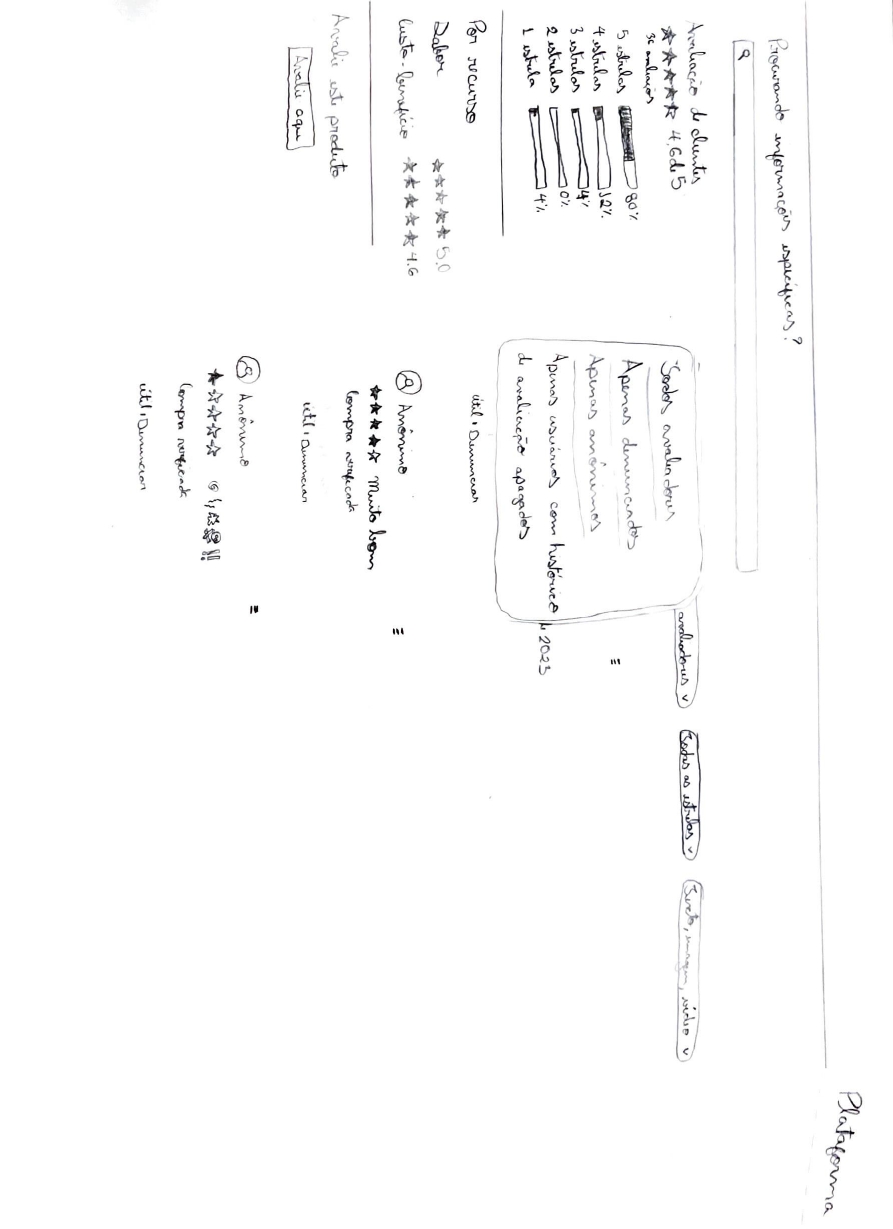 Plataforma
Procurando informações específicas?
Avaliação de clientes
4.6 de 5
36 avaliações
5 estrelas 80%
4 estrelas 12%
3 estrelas 4%
2 estrelas 0%
1 estrela 4%
Por recurso
Sabor 5.0
Custo-benefício 4.6
Avalie este produto
Avalie aqui
avaliadores
Todas as estrelas
Texto, imagem, vídeo
Todos avaliadores
Apenas denunciados
Apenas anônimos
Apenas usuários com histórico
de avaliação apagados
2023
útil | Denunciar
Anônimo
Muito bom
Compra verificada
útil | Denunciar
Anônimo
Compra verificada
útil | Denunciar